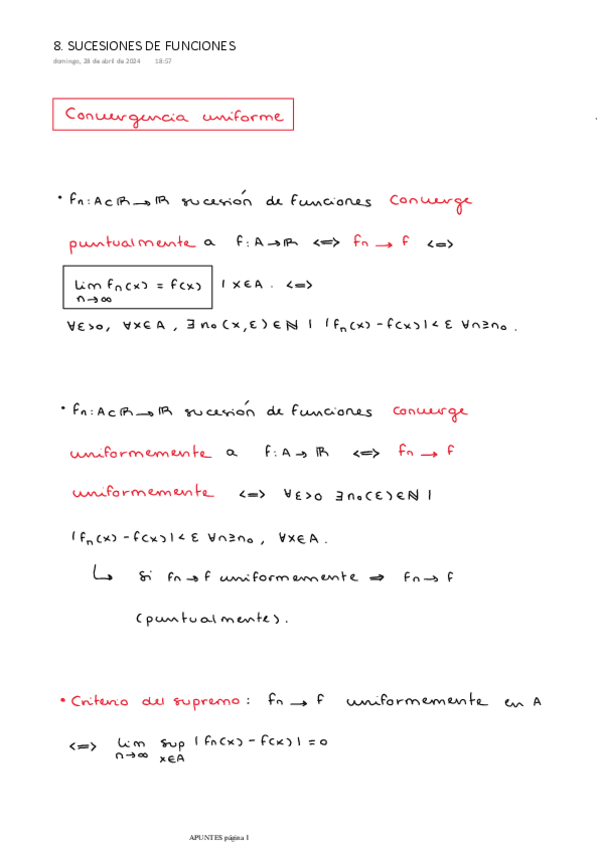 8. SUCESIONES DE FUNCIONES
domingo, 28 de abril de 2024 18:57
Convergencia uniforme
• fn: A⊂ℝ→ℝ sucesión de funciones converge
puntualmente a f: A→ℝ <=> fn → f <=>
lim fn(x) = f(x) | x∈A. <=>
n→∞
∀ε>0, ∀x∈A, ∃ n₀(x,ε)∈ℕ | |fn(x)-f(x)|< ε ∀n≥n₀.
• fn: A⊂ℝ→ℝ sucesión de funciones converge
uniformemente a f: A→ℝ <=> fn → f
uniformemente <=> ∀ε>0 ∃n₀(ε)∈ℕ |
|fn(x)-f(x)|< ε ∀n≥n₀, ∀x∈A.
↳ Si fn→f uniformemente ⇒ fn→f
(puntualmente).
• Criterio del supremo: fn → f uniformemente en A
<=> lim sup |fn(x)-f(x)| = 0
n→∞ x∈A
APUNTES página 1